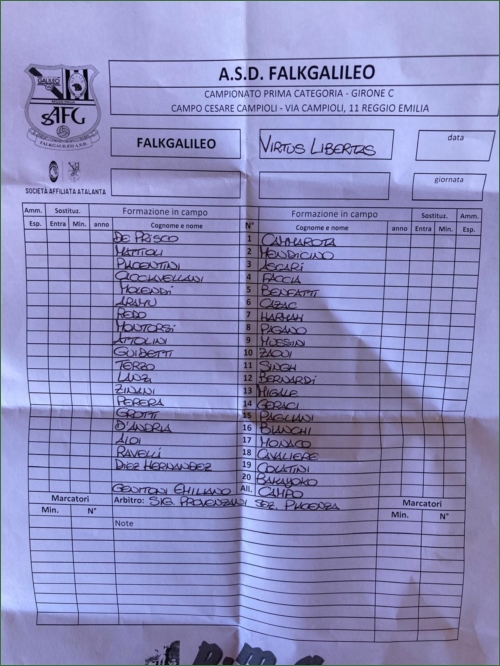 A.S.D. FALKGALILEO
CAMPIONATO PRIMA CATEGORIA - GIRONE C
CAMPO CESARE CAMPIOLI - VIA CAMPIOLI, 11 REGGIO EMILIA
GALILEO
AFG
FALKGALILEO A.S.D.
SOCIETÀ AFFILIATA ATALANTA
FALKGALILEO VIRTUS LIBERTAS data
giornata
Amm. Sostituz. Formazione in campo Formazione in campo Sostituz. Amm.
Esp. Entra Min. anno Cognome e nome N° Cognome e nome anno Entra Min. Esp.
DE PRISCO 1 CAMMAROTA
MATTIOLI 2 MENDICINO
PIACENTINI 3 ASCARI
CACCIAVELLANI 4 FACCIA
MOLENDI 5 BENFATTI
ARAMU 6 CAZAC
REDO 7 HARMAN
MONTORSI 8 PAGANO
ATTOLINI 9 MUSSINI
GUIDETTI 10 ZAOUI
TERZO 11 SINGH
LANZI 12 BERNARDI
ZINANI 13 MIGALE
PERERA 14 GERACI
GROTTI 15 PAGLIANI
D'ANDRIA 16 BIANCHI
ALDI 17 MONACO
RAVELLI 18 CAVALIERE
DIEZ HERNANDEZ 19 COLATINI
20 BAKAYOKO
GENITONI EMILIANO All. CAMPO
Marcatori Arbitro: SIG. PROVENZANI SEZ. PIACENZA Marcatori
Min. N° Note Min. N°